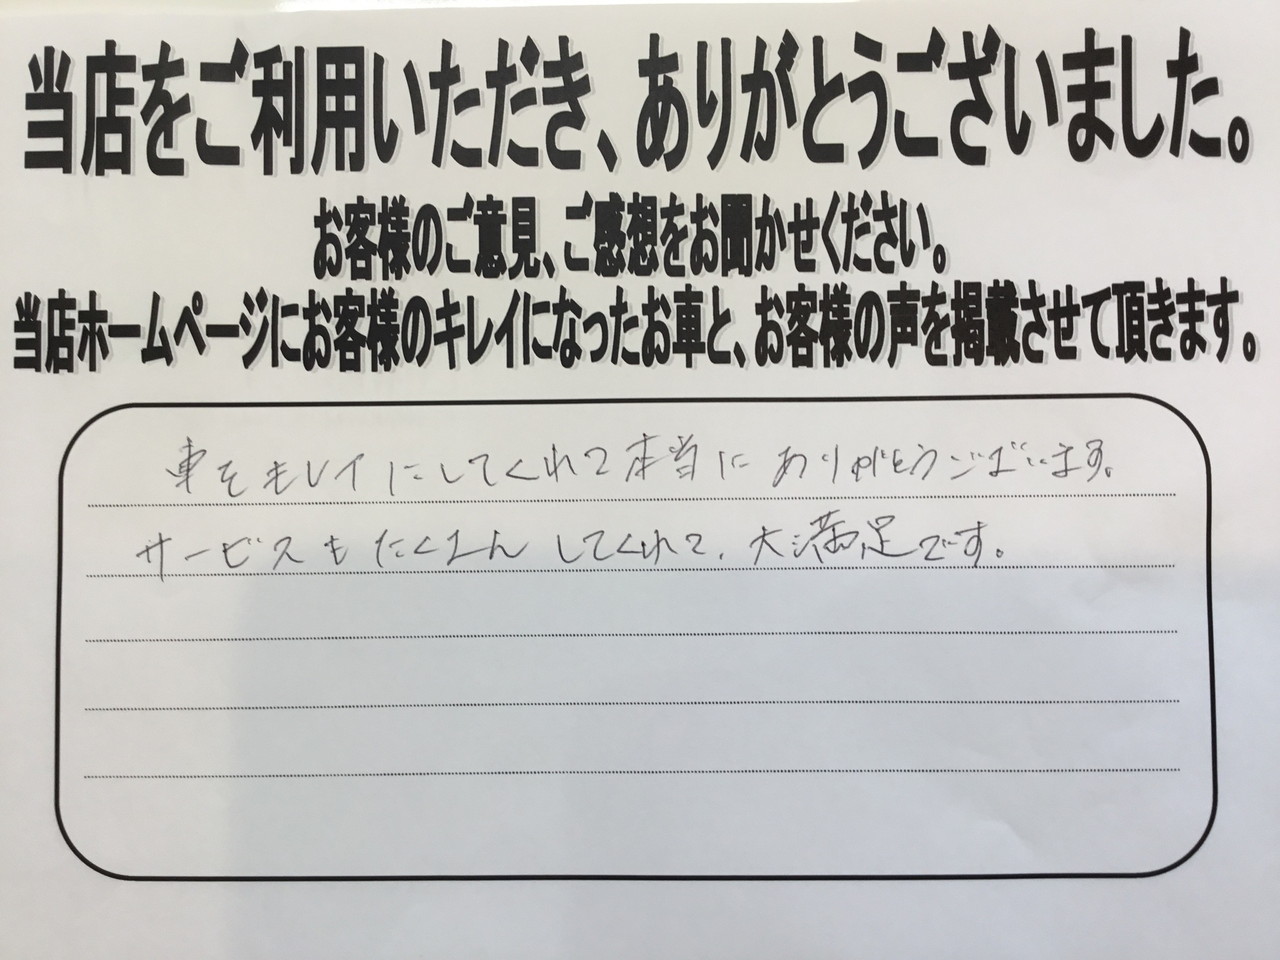 当店をご利用いただき、ありがとうございました。
お客様のご意見、ご感想をお聞かせください。
当店ホームページにお客様のキレイになったお車と、お客様の声を掲載させて頂きます。
車をキレイにしてくれて本当にありがとうございます。
サービスもたくさんしてくれて、大満足です。